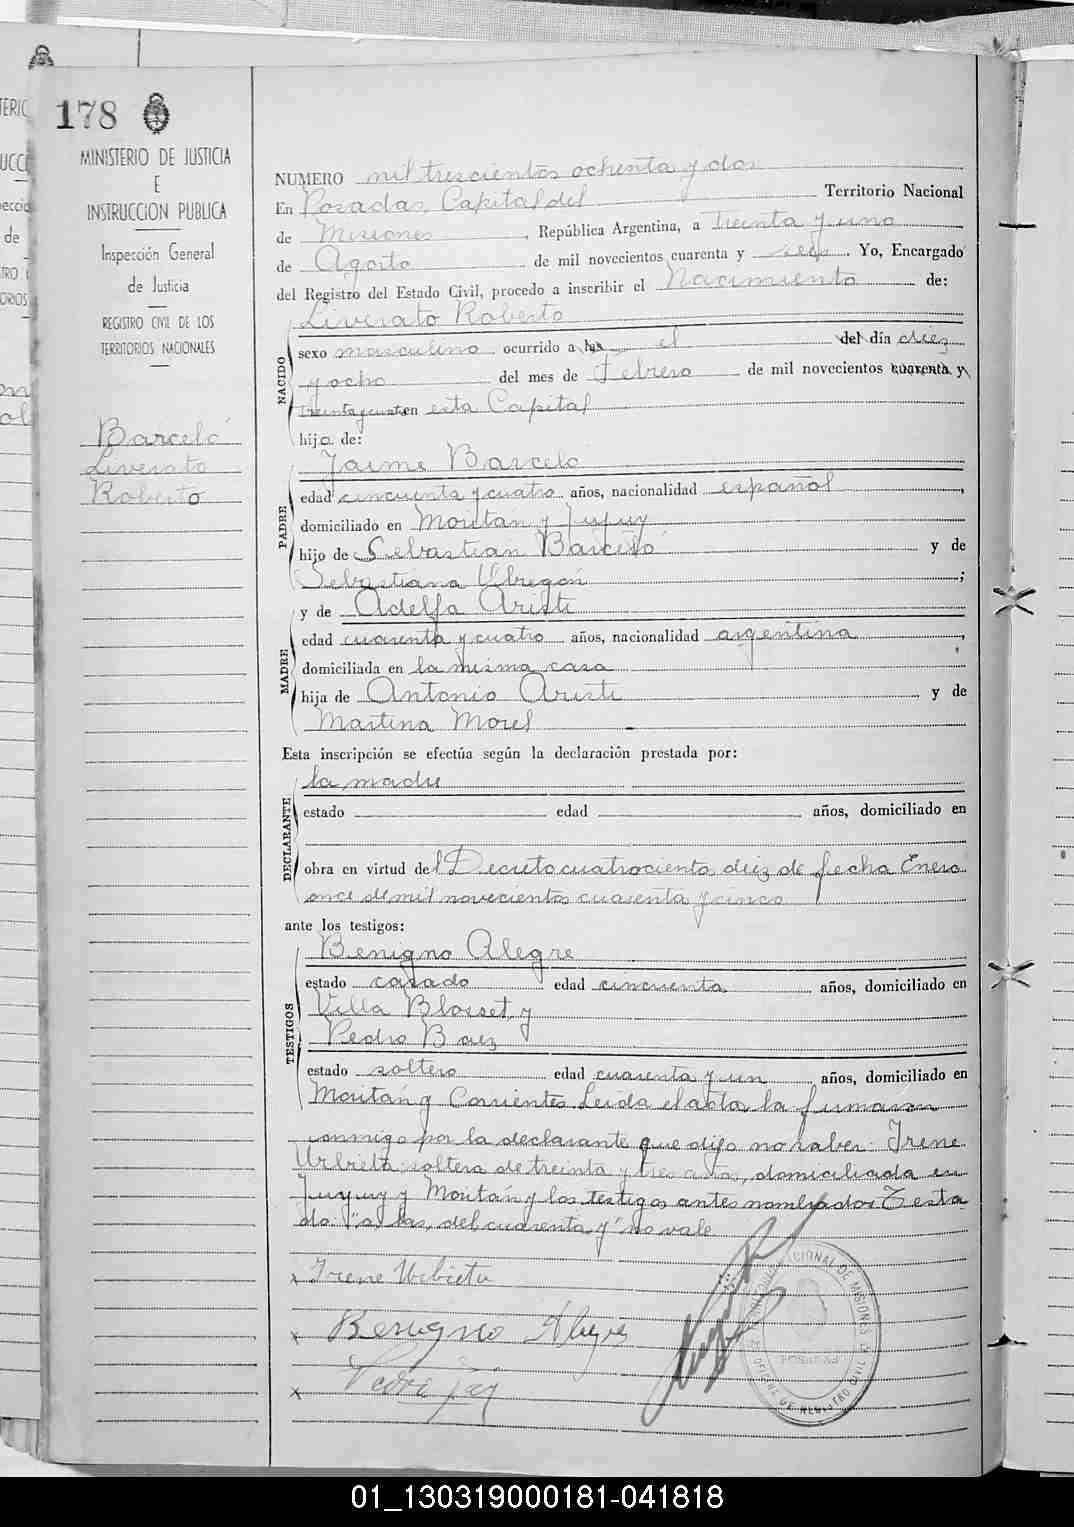 178
MINISTERIO DE JUSTICIA
E
INSTRUCCION PUBLICA
Inspección General
de Justicia
REGISTRO CIVIL DE LOS
TERRITORIOS NACIONALES
Barceló
Liverato
Roberto
NUMERO mil trescientos ochenta y dos
En Posadas, Capital del Territorio Nacional
de Misiones, República Argentina, a treinta y uno
de Agosto de mil novecientos cuarenta y seis. Yo, Encargado
del Registro del Estado Civil, procedo a inscribir el Nacimiento de:
Liverato Roberto
NACIDO
sexo masculino, ocurrido a las el del día diez
y ocho del mes de Febrero de mil novecientos cuarenta y
treinta y cuatro en esta Capital
hijo de:
Jaime Barcelo
PADRE
edad cincuenta y cuatro años, nacionalidad español,
domiciliado en Moritan y Jujuy
hijo de Sebastian Barceló y de
Sebastiana Vibregón;
y de Adelfa Aristi
MADRE
edad cuarenta y cuatro años, nacionalidad argentina,
domiciliada en la misma casa
hija de Antonio Aristi y de
Martina Morel
Esta inscripción se efectúa según la declaración prestada por:
la madre
DECLARANTE
estado edad años, domiciliado en
obra en virtud del Decreto cuatrocientos diez de fecha Enero
once de mil novecientos cuarenta y cinco
ante los testigos:
Benigno Alegre
TESTIGOS
estado casado edad cincuenta años, domiciliado en
Villa Blosset y
Pedro Baez
estado soltero edad cuarenta y un años, domiciliado en
Moritán y Corrientes. Leida el acta, la firmaron
conmigo por la declarante que dijo no saber: Irene
Urbieta soltera de treinta y tres años, domiciliada en
Jujuy y Moritán y los testigos antes nombrados Testa
do: "a las, del cuarenta y" no vale
x Irene Urbieta
x Benigno Alegre
x Pedro
NACIONAL DE MISIONES
OFICINA DE REGISTRO CIVIL
01_130319000181-041818